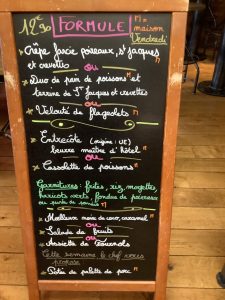 12€90 FORMULE m = maison
Vendredi
Crêpe farcie poireaux, St Jacques
et crevettes
ou
Duo de pain de poissons m et
terrine de St Jacques et crevettes
ou
Velouté de flageolets m
Entrecôte (origine : UE)
beurre maître d'hôtel m
ou
Cassolette de poissons m
Garnitures: frites, riz, mogettes,
haricots verts, fondue de poireaux
ou
Moelleux noix de coco, caramel m
ou
Salade de fruits
ou
Assiette de
Cette semaine le chef vous
propose
Rôti de palette de porc m